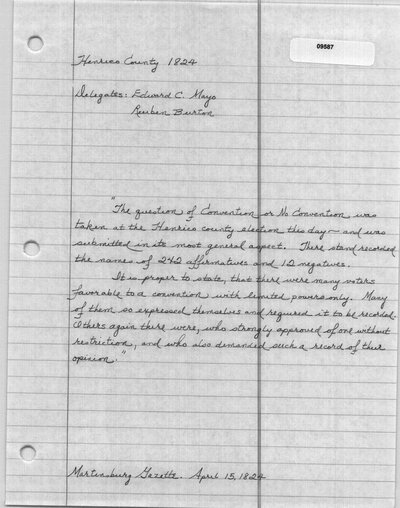 09587
Henrico County 1824
Delegates: Edward C. Mayo
Reuben Burton
"The question of Convention or No Convention was
taken at the Henrico county election this day — and was
submitted in its most general aspect. There stand recorded
the names of 242 affirmatives and 12 negatives.
It is proper to state, that there were many voters
favorable to a convention with limited powers only. Many
of them so expressed themselves and required it to be recorded.
Others again there were, who strongly approved of one without
restriction, and who also demanded such a record of their
opinion."
Martinsburg Gazette. April 15, 1824